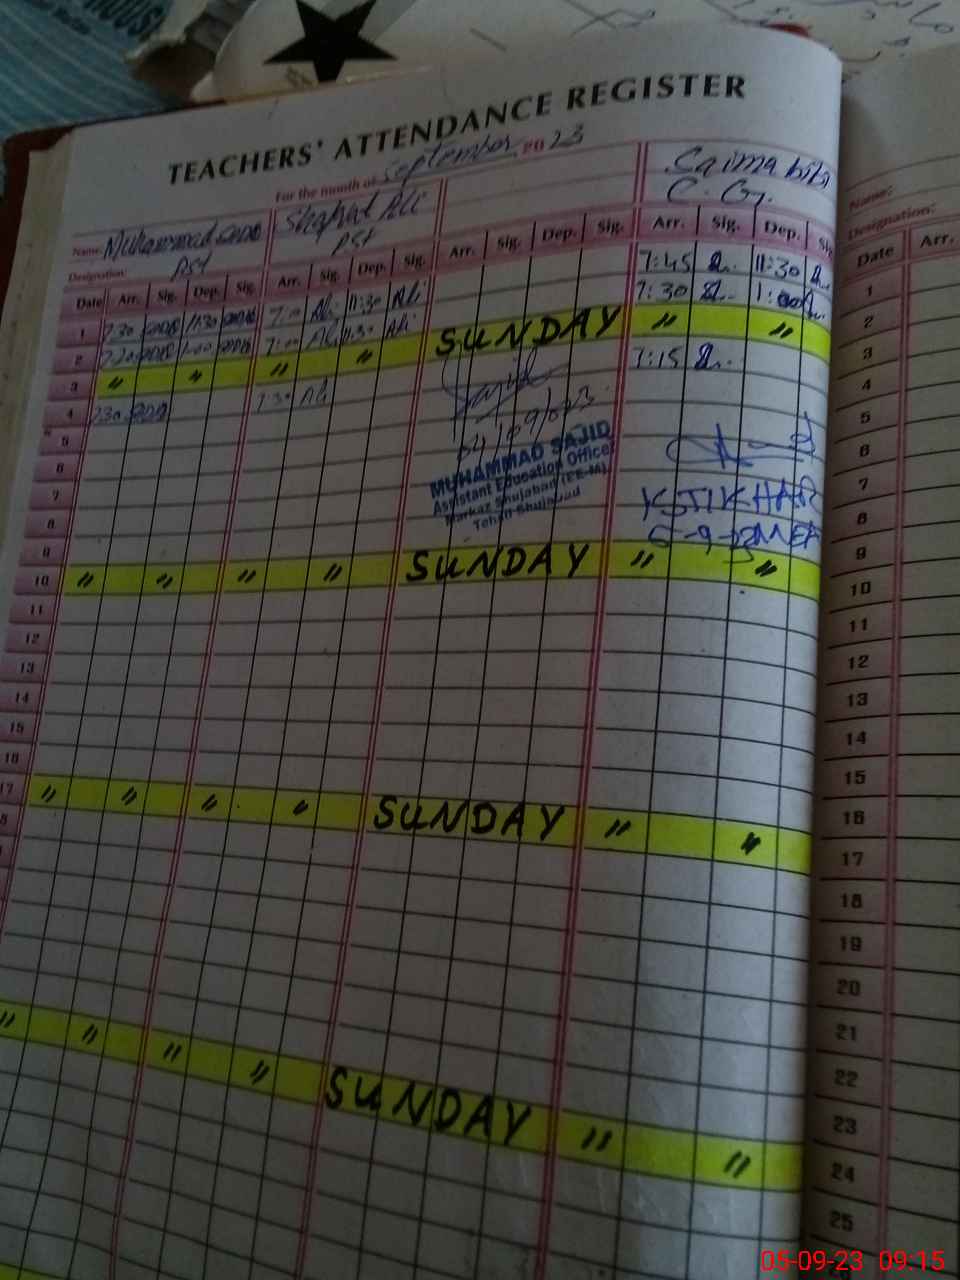 TEACHERS' ATTENDANCE REGISTER
For the month of September 2023
Name: Muhammad Shafqat Ali Saima bibi
Designation: PST PST C.G.
Date Arr. Sig. Dep. Sig. Arr. Sig. Dep. Sig. Arr. Sig. Dep. Sig. Arr. Sig. Dep. Sig.
1 730 1130 7:00 Ali 11:30 Ali 7:45 11:30
2 7:00 Ali Ali 7:30 1:00
3 " " " " SUNDAY " "
4 730 7:30 Ali 7:15
5
04/09/023
6
MUHAMMAD SAJID
Assistant Education Officer
Markaz Shujabad (EE-M)
Tehsil Shujabad
7
IFTIKHAR
8
5-9-23 MEA
9
10 " " " " SUNDAY " "
11
12
13
14
15
16
17 " " " " SUNDAY " "
" " " " SUNDAY " "
Name:
Designation:
Date Arr.
1
2
3
4
5
6
7
8
9
10
11
12
13
14
15
16
17
18
19
20
21
22
23
24
25
05-09-23 09:15